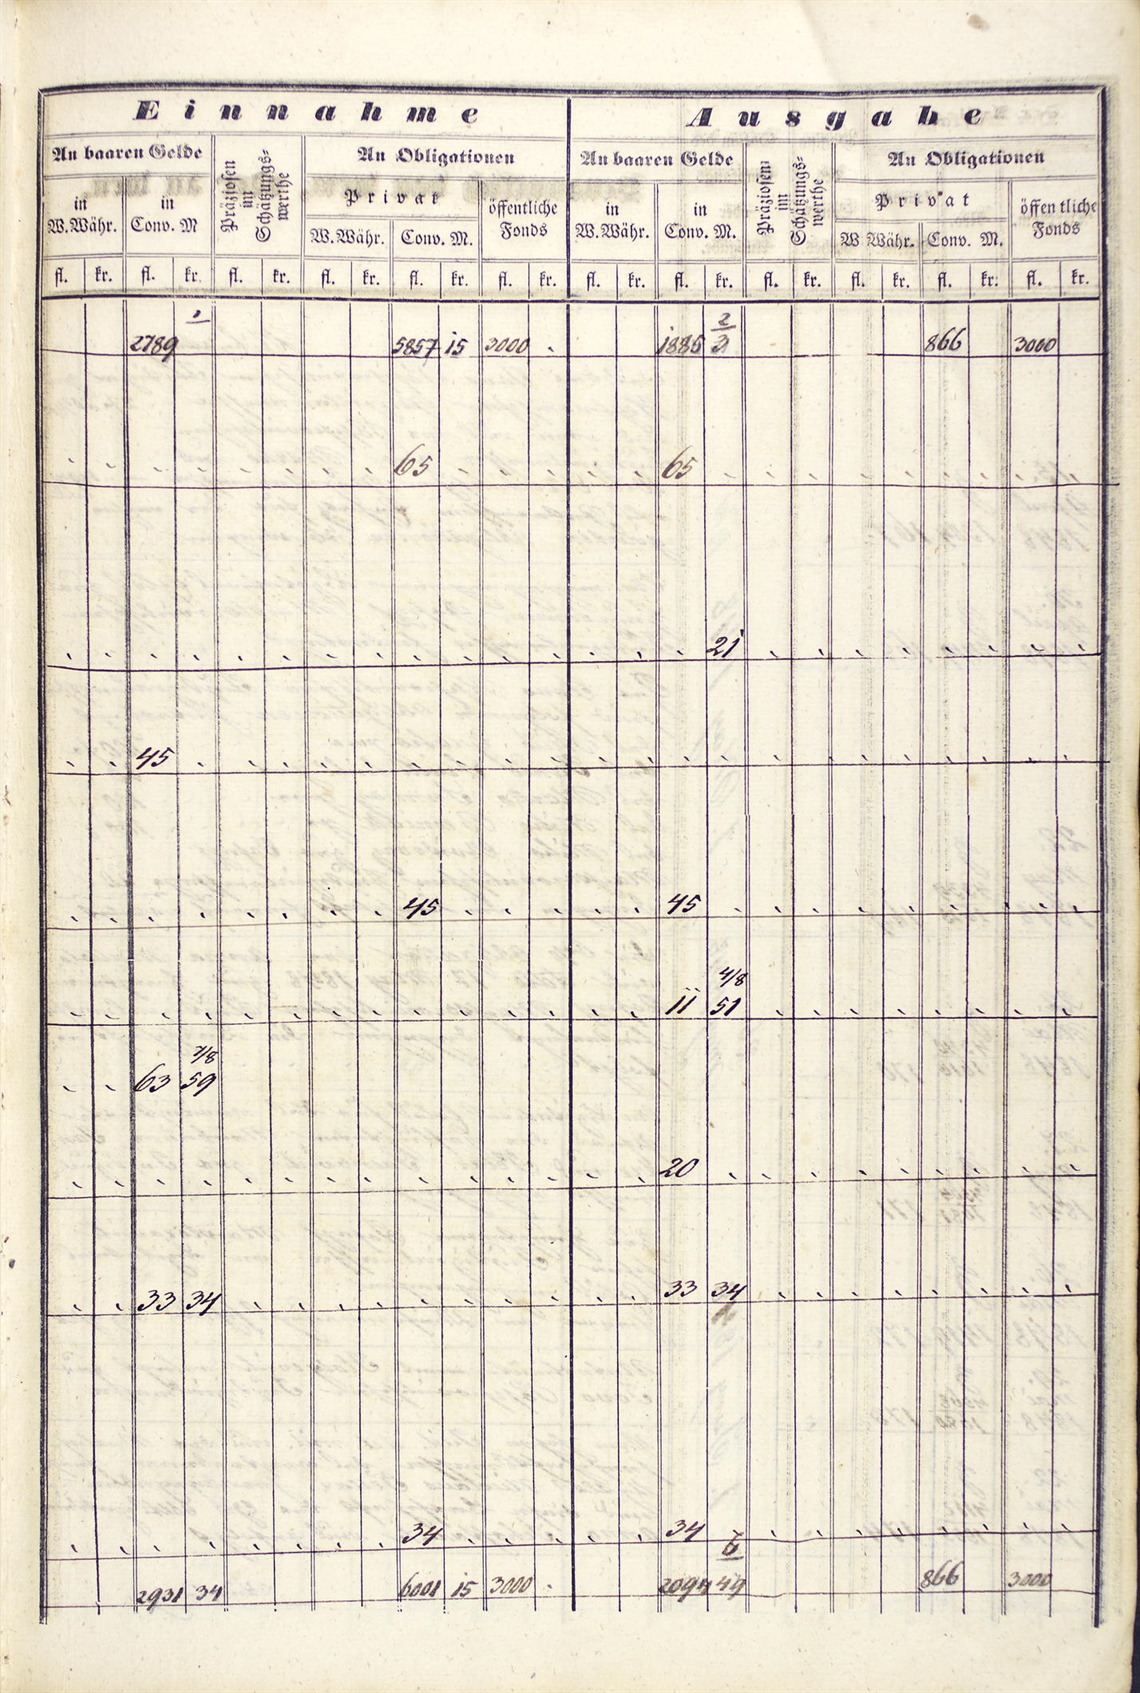 Einnahme Ausgabe
An baaren Gelde Präziosen im Schätzungs-werthe An Obligationen An baaren Gelde Präziosen im Schätzungs-werthe An Obligationen
in W. Währ. in Conv. M Privat öffentliche Fonds in W. Währ. in Conv. M. Privat öffentliche Fonds
W. Währ. Conv. M. W Währ. Conv. M.
fl. kr. fl. kr. fl. kr. fl. kr. fl. kr. fl. kr. fl. kr. fl. kr. fl. kr. fl. kr. fl. kr. fl. kr.
1 2
2789 5857 15 3000 1885 3 866 3000
65 65
21
45
45 45
4/8
11 51
7/8
63 59
20
33 34 33 34
34 34
6
2931 34 6001 15 3000 2094 49 866 3000